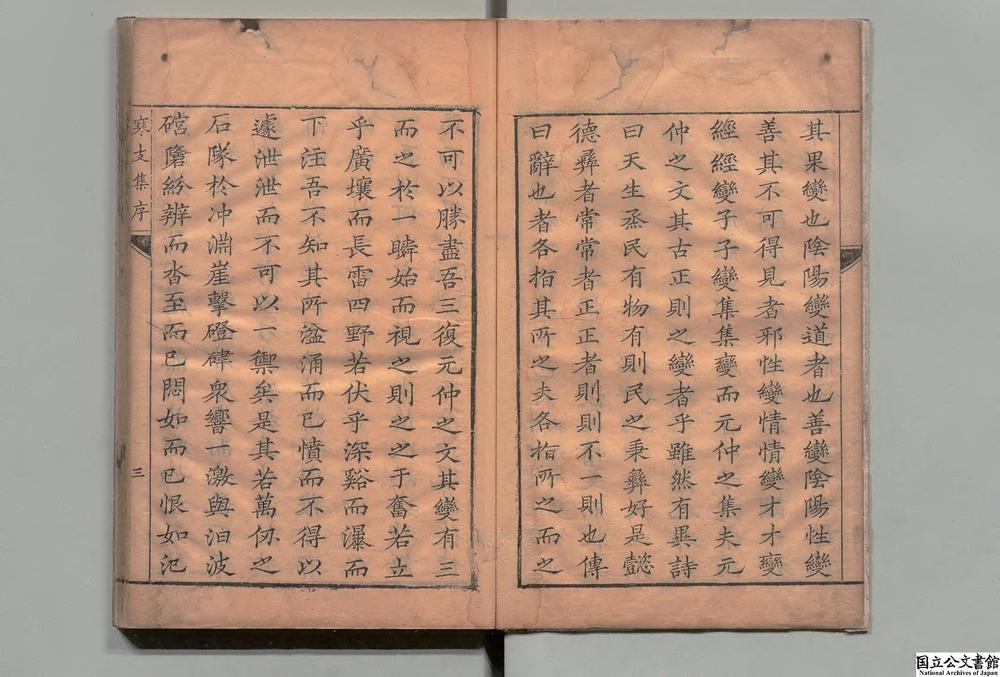 其果變也陰陽變道者也善變陰陽性變
善其不可得見者邪性變情情變才才變
經經變子子變集集變而元仲之集夫元
仲之文其古正則之變者乎雖然有異詩
曰天生烝民有物有則民之秉彝好是懿
德彝者常常者正正者則則不一則也傳
曰辭也者各指其所之夫各指所之而之
不可以勝盡吾三復元仲之文其變有三
而之於一瞬始而視之則之之于奮若立
乎廣壤而長雷四野若伏乎深谿而瀑而
下注吾不知其所湓涌而已憤而不得以
遽泄泄而不可以一禦矣是其若萬仞之
石隊於冲淵崖擊磴硉衆響一激與洎波
磄隥紛辨而沓至而已悶如而已恨如氾
寒支集序
三
国立公文書館
National Archives of Japan